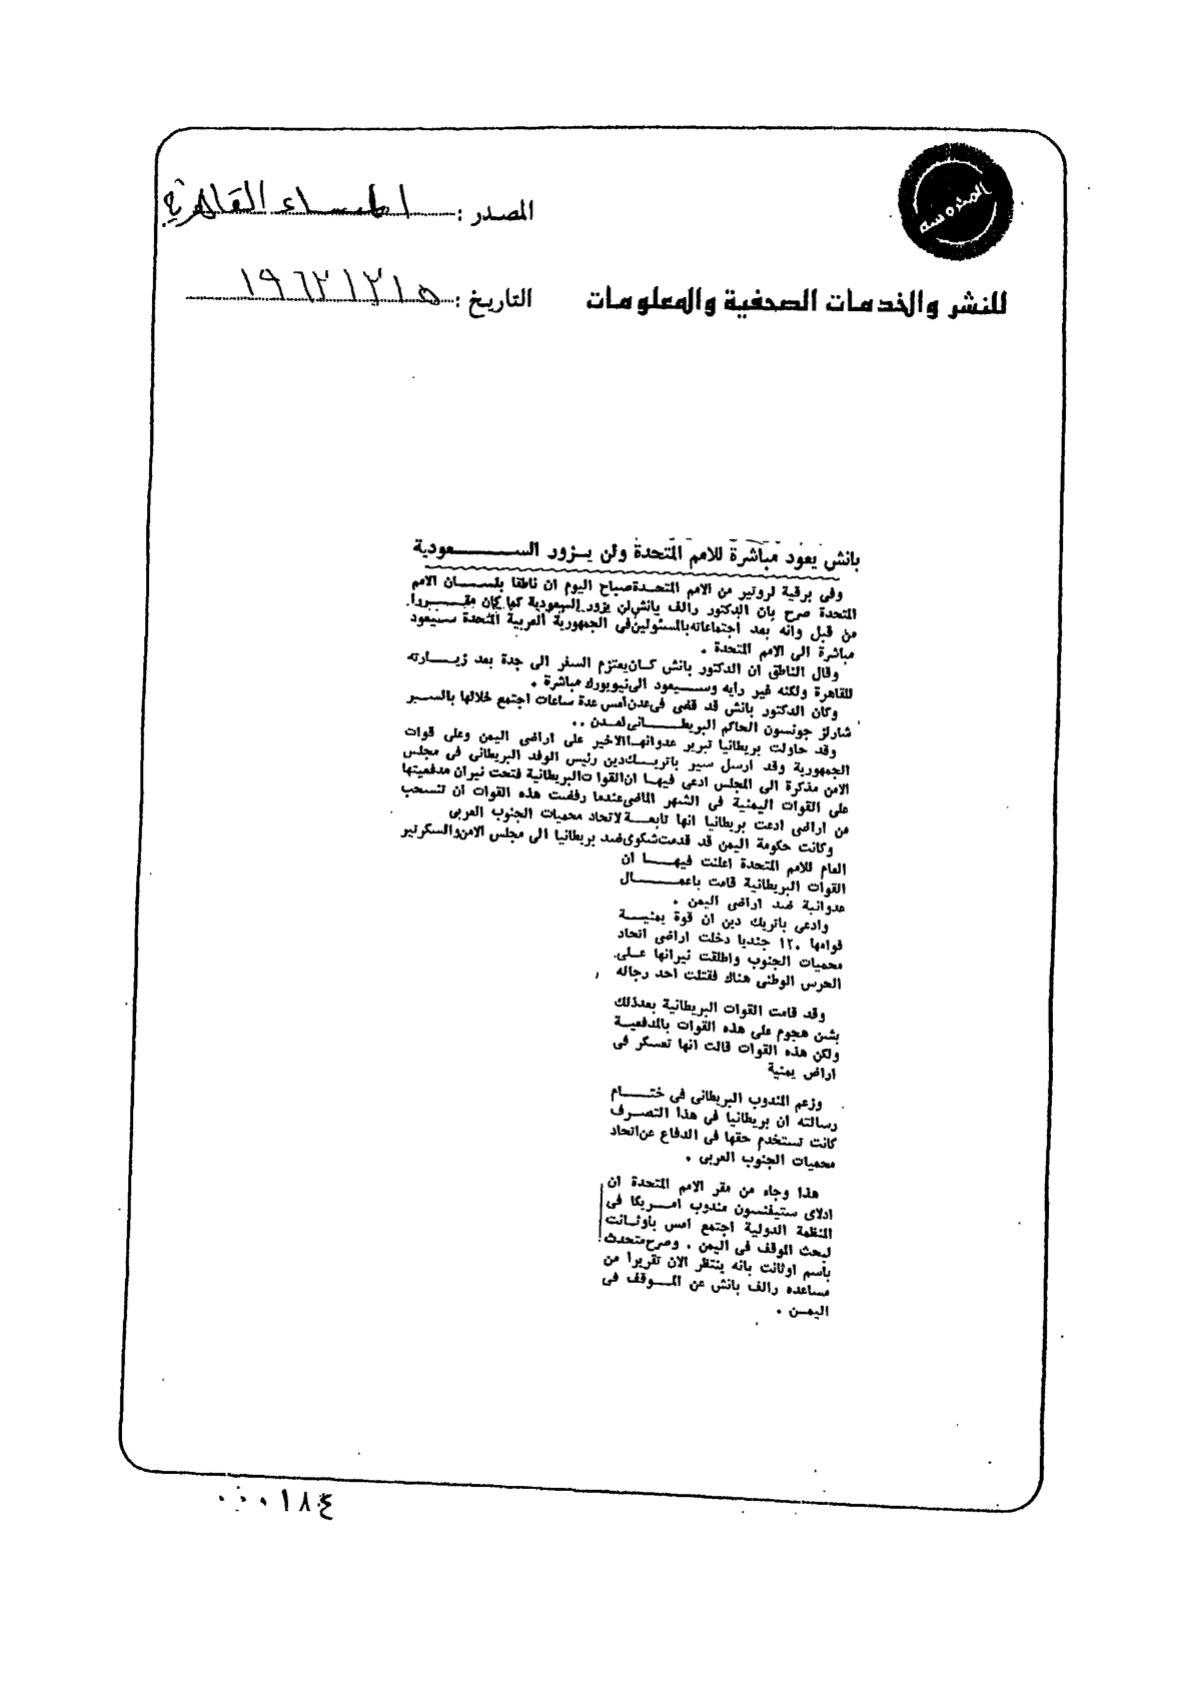 المصدر : المساء القاهرية
التاريخ : ١٩٦٣/٣/٥
للنشر والخدمات الصحفية والمعلومات
بانش يعود مباشرة للامم المتحدة ولن يزور السعودية
وفى برقية لروتير من الامم المتحدة صباح اليوم ان ناطقا بلسان الامم
المتحدة صرح بان الدكتور رالف بانش لن يزور السعودية كما كان مقررا
من قبل وانه بعد اجتماعاته بالمسئولين فى الجمهورية العربية المتحدة سيعود
مباشرة الى الامم المتحدة .
وقال الناطق ان الدكتور بانش كان يعتزم السفر الى جدة بعد زيارته
للقاهرة ولكنه غير رأيه وسيعود الى نيويورك مباشرة .
وكان الدكتور بانش قد قضى فى عدن امس عدة ساعات اجتمع خلالها بالسير
شارلز جونسون الحاكم البريطانى لعدن ..
وقد حاولت بريطانيا تبرير عدوانها الاخير على اراضى اليمن وعلى قوات
الجمهورية وقد ارسل سير باتريك دين رئيس الوفد البريطانى فى مجلس
الامن مذكرة الى المجلس ادعى فيها ان القوات البريطانية فتحت نيران مدفعيتها
على القوات اليمنية فى الشهر الماضى عندما رفضت هذه القوات ان تنسحب
من اراضى ادعت بريطانيا انها تابعة لاتحاد محميات الجنوب العربى
وكانت حكومة اليمن قد قدمت شكوى ضد بريطانيا الى مجلس الامن والسكرتير
العام للامم المتحدة اعلنت فيها ان
القوات البريطانية قامت باعمال
عدوانية ضد اراضى اليمن .
وادعى باتريك دين ان قوة يمنية
قوامها ١٢٠ جنديا دخلت اراضى اتحاد
محميات الجنوب واطلقت نيرانها على
الحرس الوطنى هناك فقتلت احد رجاله
وقد قامت القوات البريطانية بعد ذلك
بشن هجوم على هذه القوات بالمدفعية
ولكن هذه القوات قالت انها تعسكر فى
اراض يمنية
وزعم المندوب البريطانى فى ختام
رسالته ان بريطانيا فى هذا التصرف
كانت تستخدم حقها فى الدفاع عن اتحاد
محميات الجنوب العربى .
هذا وجاء من مقر الامم المتحدة ان
ادلاى ستيفنسون مندوب امريكا فى
المنظمة الدولية اجتمع امس بأوثانت
لبحث الموقف فى اليمن . وصرح متحدث
باسم اوثانت بانه ينتظر الان تقريرا من
مساعده رالف بانش عن الموقف فى
اليمن .
٠٠٠١٨٤